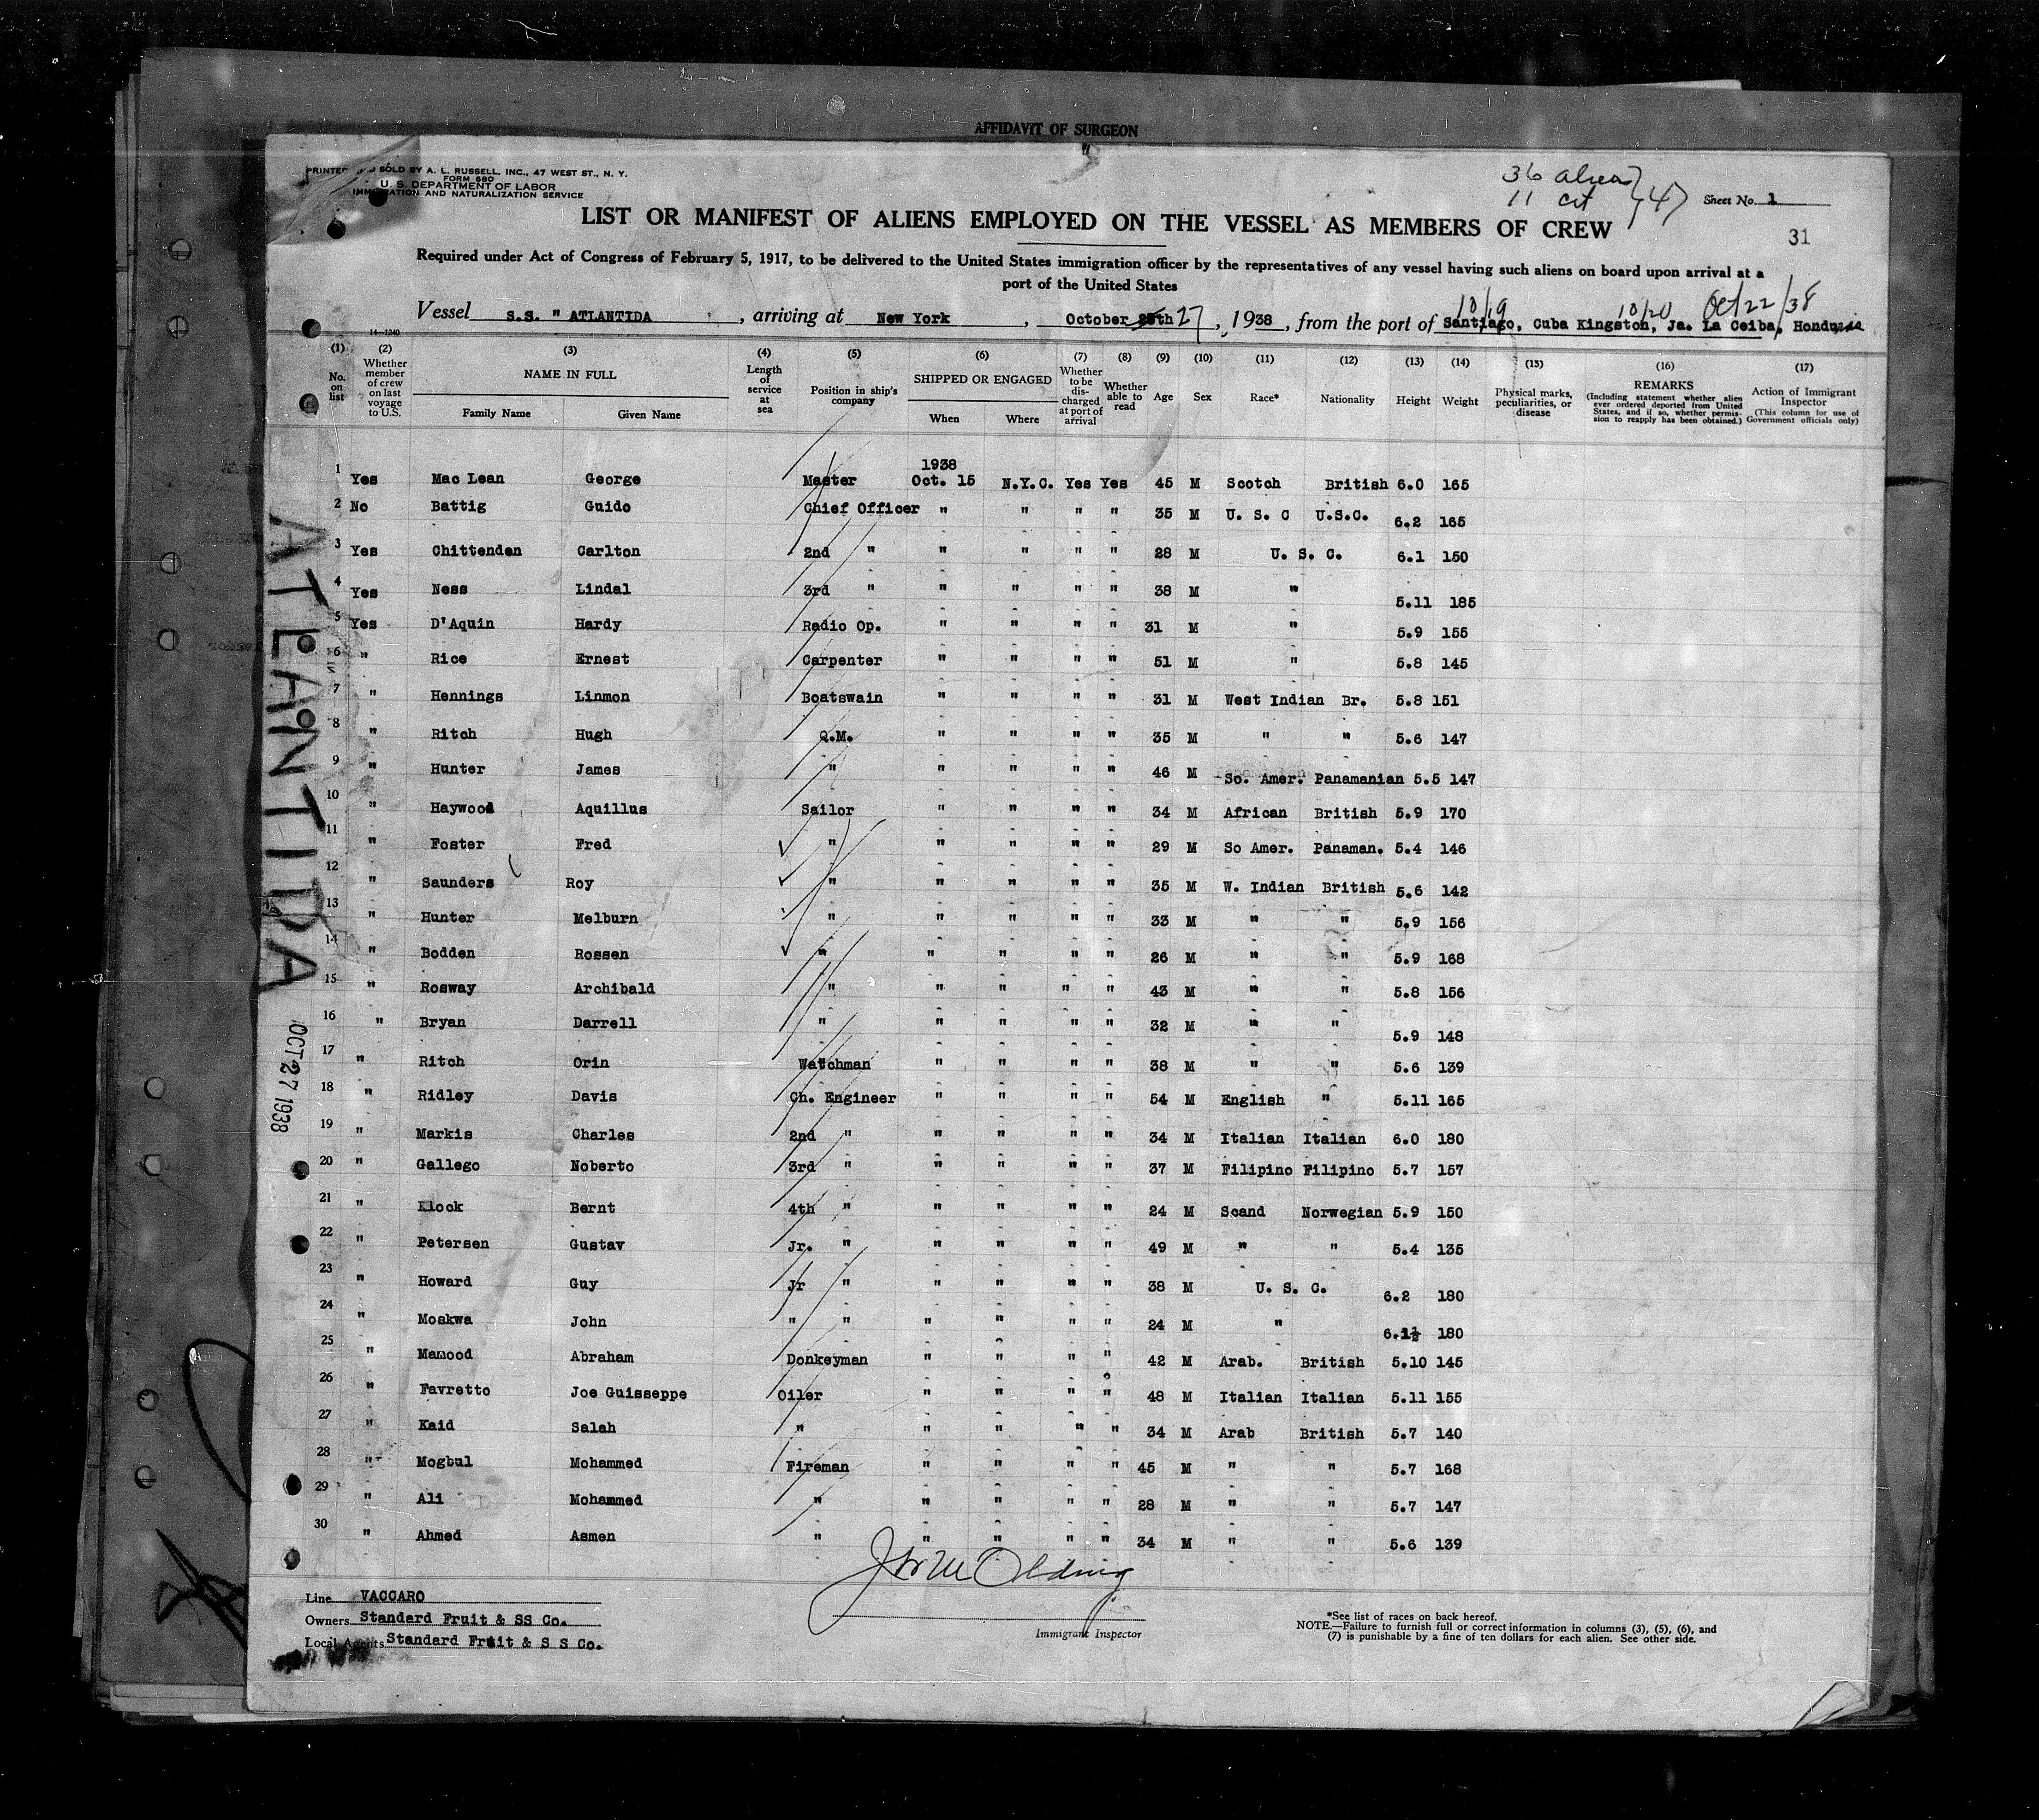 AFFIDAVIT OF SURGEON
PRINTED AND SOLD BY A. L. RUSSELL, INC., 47 WEST ST., N. Y.
FORM 680
U. S. DEPARTMENT OF LABOR
IMMIGRATION AND NATURALIZATION SERVICE
36 aliens
11 cit
47
Sheet No. 1
LIST OR MANIFEST OF ALIENS EMPLOYED ON THE VESSEL AS MEMBERS OF CREW
31
Required under Act of Congress of February 5, 1917, to be delivered to the United States immigration officer by the representatives of any vessel having such aliens on board upon arrival at a
port of the United States
10/19 10/20 Oct/22/38
Vessel S.S. " ATLANTIDA , arriving at New York , October 25th 27 , 1938 , from the port of Santiago, Cuba Kingston, Ja. La Ceiba, Honduras
14-1240
(1) (2) (3) (4) (5) (6) (7) (8) (9) (10) (11) (12) (13) (14) (15) (16) (17)
No. on list Whether member of crew on last voyage to U.S. NAME IN FULL Family Name Given Name Length of service at sea Position in ship's company SHIPPED OR ENGAGED When Where Whether to be discharged at port of arrival Whether able to read Age Sex Race* Nationality Height Weight Physical marks, peculiarities, or disease REMARKS (Including statement whether alien ever ordered deported from United States, and if so, whether permission to reapply has been obtained.) Action of Immigrant Inspector (This column for use of Government officials only)
1938
1 Yes Mac Lean George Master Oct. 15 N.Y.C. Yes Yes 45 M Scotch British 6.0 165
2 No Battig Guido Chief Officer " " " " 35 M U. S. C U.S.C. 6.2 165
3 Yes Chittenden Carlton 2nd " " " " " 28 M U. S. C. 6.1 150
4 Yes Ness Lindal 3rd " " " " " 38 M " 5.11 185
5 Yes D'Aquin Hardy Radio Op. " " " " 31 M " 5.9 155
6 " Rice Ernest Carpenter " " " " 51 M " 5.8 145
7 " Hennings Linmon Boatswain " " " " 31 M West Indian Br. 5.8 151
8 " Ritch Hugh Q.M. " " " " 35 M " " 5.6 147
9 " Hunter James " " " " " 46 M So. Amer. Panamanian 5.5 147
10 " Haywood Aquillus Sailor " " " " 34 M African British 5.9 170
11 " Foster Fred " " " " " 29 M So Amer. Panaman. 5.4 146
12 " Saunders Roy " " " " " 35 M W. Indian British 5.6 142
13 " Hunter Melburn " " " " " 33 M " " 5.9 156
14 " Bodden Rossen " " " " " 26 M " " 5.9 168
15 " Rosway Archibald " " " " " 43 M " " 5.8 156
16 " Bryan Darrell " " " " " 32 M " " 5.9 148
17 " Ritch Orin Watchman " " " " 38 M " " 5.6 139
18 " Ridley Davis Ch. Engineer " " " " 54 M English " 5.11 165
19 " Markis Charles 2nd " " " " " 34 M Italian Italian 6.0 180
20 " Gallego Noberto 3rd " " " " " 37 M Filipino Filipino 5.7 157
21 " Klock Bernt 4th " " " " " 24 M Scand Norwegian 5.9 150
22 " Petersen Gustav Jr. " " " " " 49 M " " 5.4 135
23 " Howard Guy Jr " " " " " 38 M U. S. C. 6.2 180
24 " Moskwa John " " " " " " 24 M " 6.1½ 180
25 " Mamood Abraham Donkeyman " " " " 42 M Arab. British 5.10 145
26 " Favretto Joe Guisseppe Oiler " " " " 48 M Italian Italian 5.11 155
27 " Kaid Salah " " " " " 34 M Arab British 5.7 140
28 " Mogbul Mohammed Fireman " " " " 45 M " " 5.7 168
29 " Ali Mohammed " " " " " 28 M " " 5.7 147
30 " Ahmed Asmen " " " " " 34 M " " 5.6 139
ATLANTIDA
OCT 27 1938
Line VACCARO
Owners Standard Fruit & SS Co.
Local Agents Standard Fruit & S S Co.
Immigrant Inspector
*See list of races on back hereof.
NOTE.—Failure to furnish full or correct information in columns (3), (5), (6), and
(7) is punishable by a fine of ten dollars for each alien. See other side.